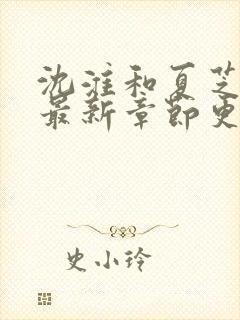 沈淮和夏芝
最新章节更
史小玲